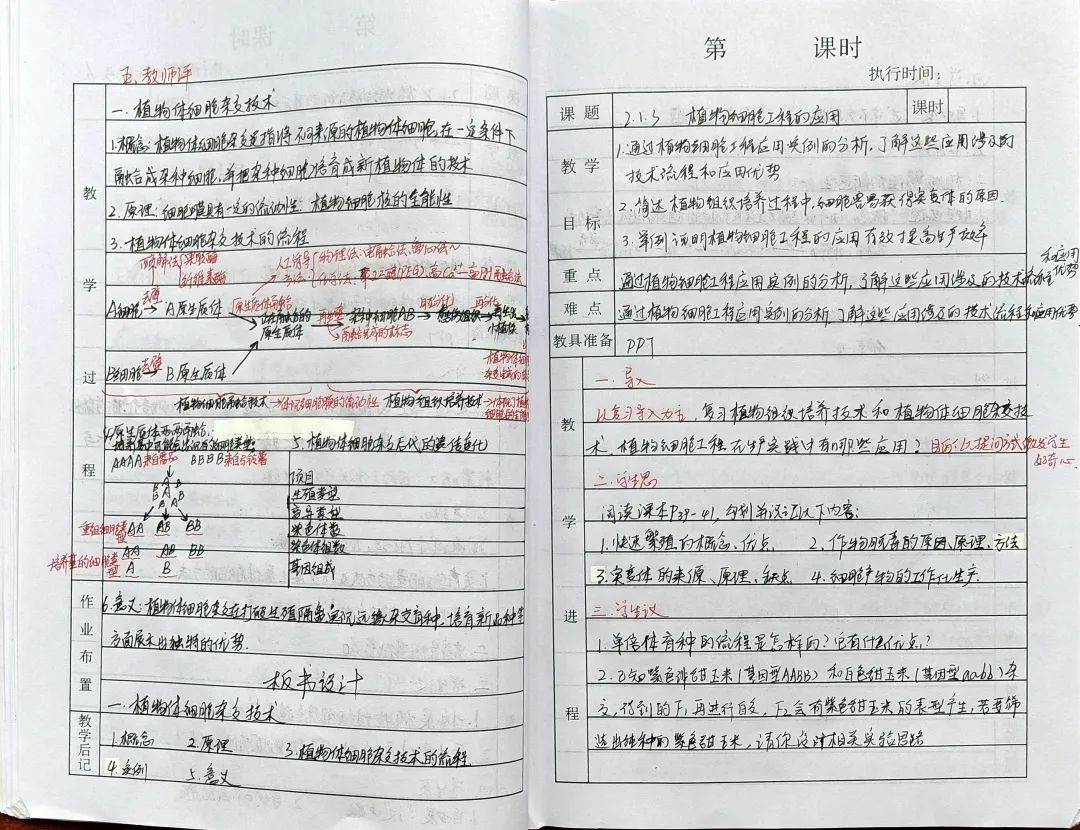 五、教师评
一、植物体细胞杂交技术
1.概念:植物体细胞杂交是指将不同来源的植物体细胞,在一定条件下
融合成杂种细胞,并把杂种细胞培育成新植物体的技术
教
2.原理:细胞膜具有一定的流动性、植物细胞核的全能性
3.植物体细胞杂交技术的流程
学
纤维素酶
人工诱导
A细胞 去壁 A原生质体
原生质体融合
再生壁
杂种细胞AB
脱分化
愈伤组织
再分化
融合完成的标志
B细胞 去壁 B原生质体
过
植物细胞融合技术→体现细胞膜的流动性 植物组织培养技术
4.原生质体两两融合
5.植物体细胞杂交后代的遗传变化
程
AAAA BBBB
项目
生殖类型
变异类型
染色体数
染色体组数
基因组成
AA AB BB
AA AB BB
A B
作业布置
6.意义:植物体细胞杂交在打破生殖隔离,实现远缘杂交育种,培育新品种等
方面展示出独特的优势.
板书设计
一、植物体细胞杂交技术
教学后记
1.概念 2.原理 3.植物体细胞杂交技术的流程
4.实例 5.意义
第 课时
执行时间:
课题 2.1.3 植物细胞工程的应用 课时
教学目标
1.通过植物细胞工程应用实例的分析,了解这些应用涉及的
技术流程和应用优势
2.简述植物组织培养过程中,细胞容易获得突变体的原因.
3.举例说明植物细胞工程的应用有效提高生产效率
重点 通过植物细胞工程应用实例的分析,了解这些应用涉及的技术流程和应用优势
难点 通过植物细胞工程应用实例的分析,了解这些应用涉及的技术流程和应用优势
教具准备 PPT
教
一、导入
以复习导入为主,复习植物组织培养技术和植物体细胞杂交技
术,植物细胞工程在生产实践中有哪些应用?目的:以提问式激发学生
好奇心.
二、学生思
学
阅读课本P39-41,勾划并识记以下内容:
1.快速繁殖的概念、优点 2.作物脱毒的原因、原理、方法
3.突变体的来源、原理、缺点 4.细胞产物的工厂化生产
进
三、学生议
1.单倍体育种的流程是怎样的?它有什么优点?
2.已知紫色非甜玉米(基因型AABB)和白色甜玉米(基因型aabb)杂
程
交,得到的F₁再进行自交,F₂会有紫色甜玉米的表型产生,若要筛
选出纯种的紫色甜玉米,请你设计相关实验思路